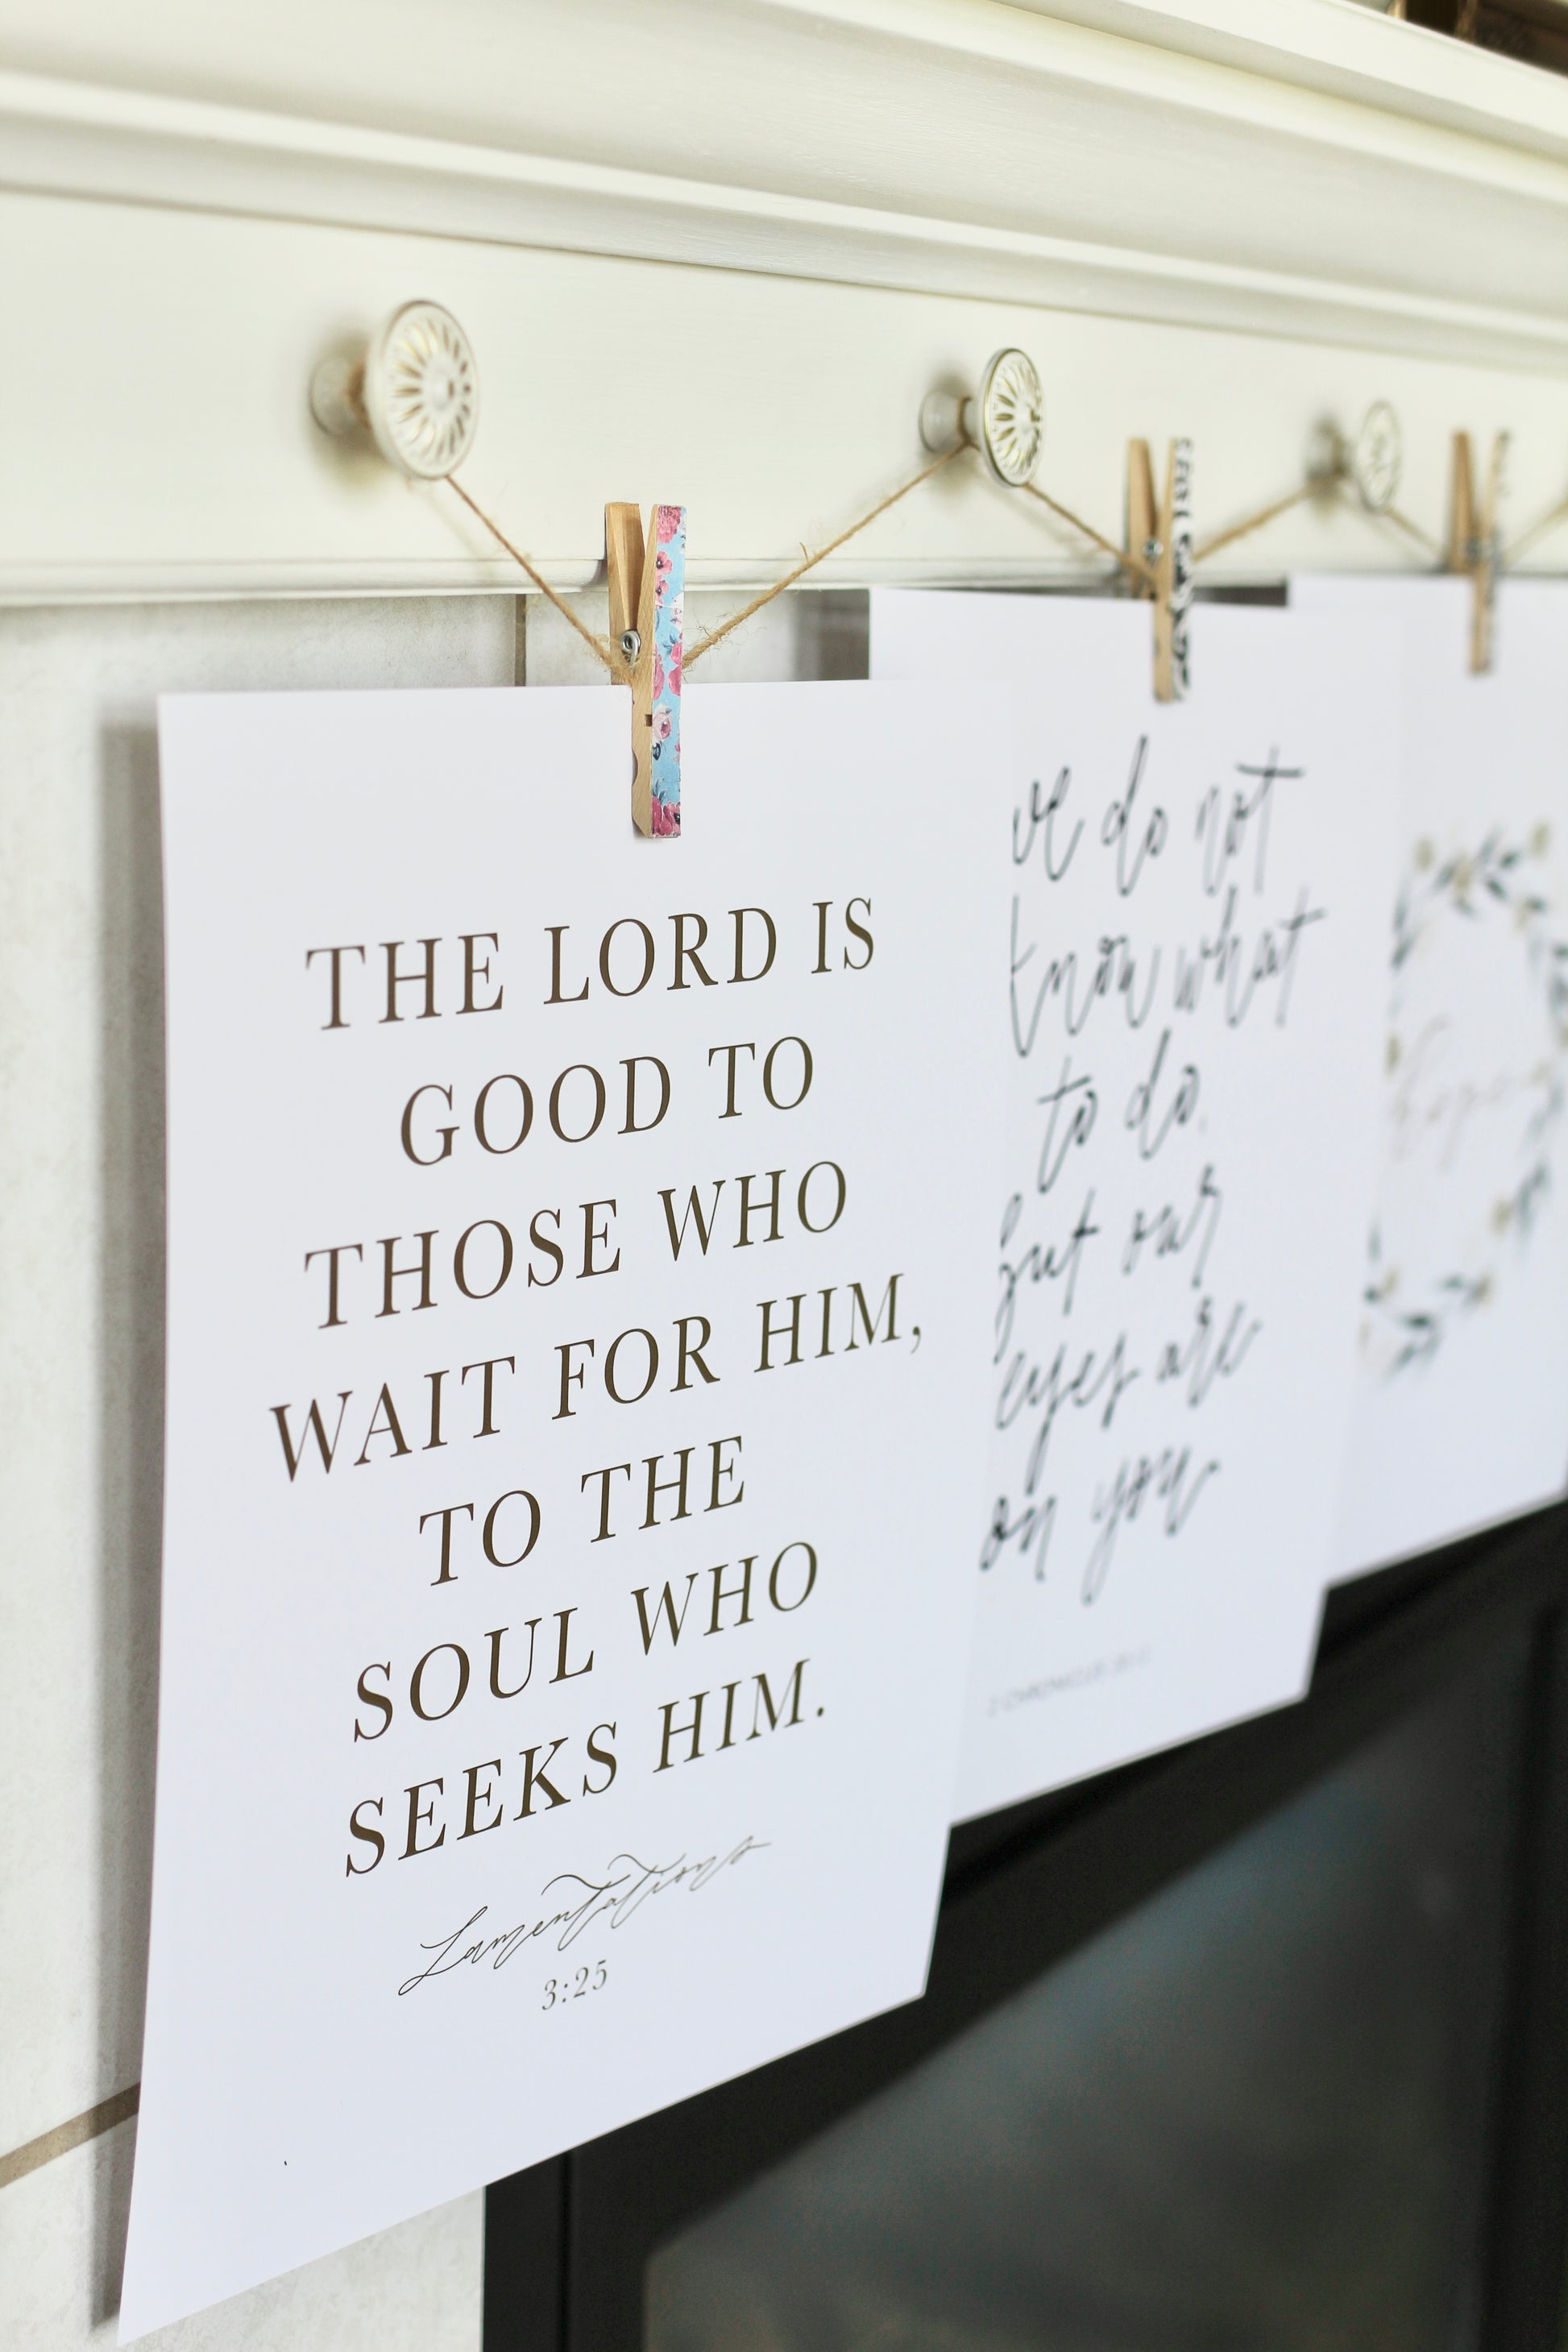 THE LORD IS
GOOD TO
THOSE WHO
WAIT FOR HIM,
TO THE
SOUL WHO
SEEKS HIM.
Lamentations
3:25
do not
know what
to do,
but our
eyes are
on you
hope